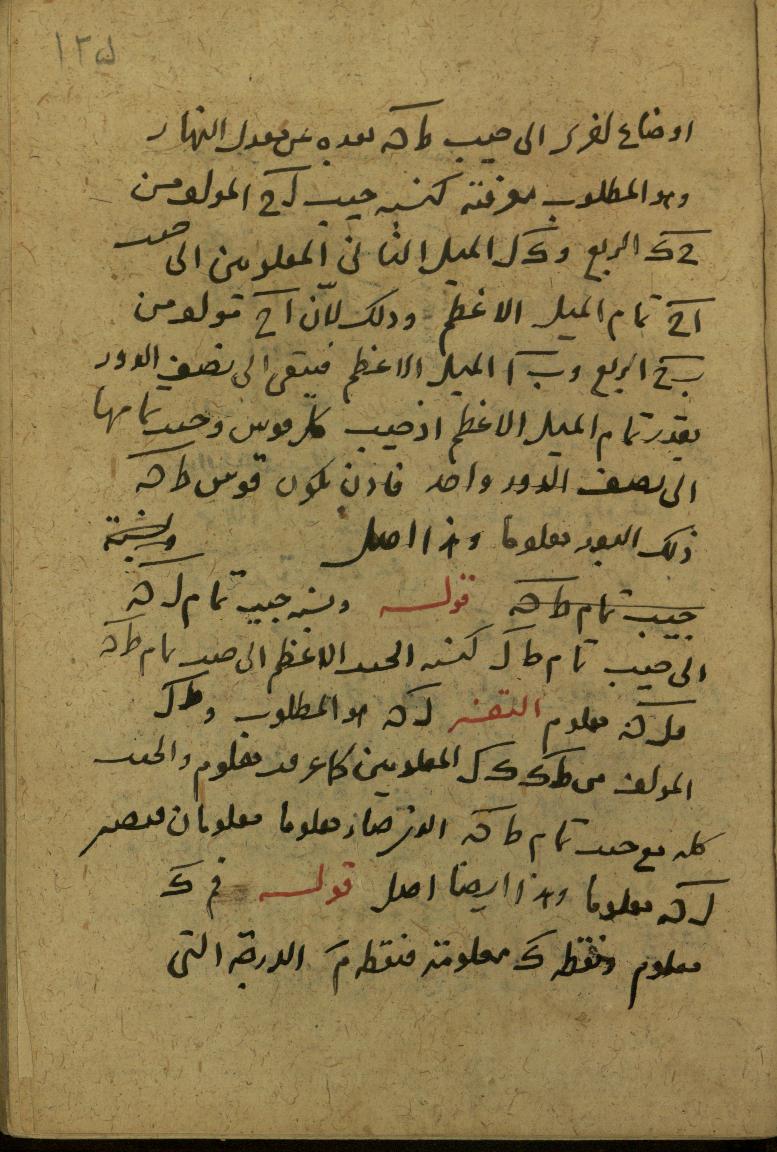 ١٢٥
اوضاع لغرر الى جيب ط ه بعده عن معدل النهار
وهو المطلوب معرفته كنسبة جيب ل ح المولف من
ح ك الربع و ك ل الميل الثانى المعلومين الى جيب
ا ح تمام الميل الاعظم وذلك لان ا ح قولف من
ب ح الربع و ب ا الميل الاعظم فيبقى الى نصف الدور
بقدر تمام الميل الاعظم اذ جيب كل قوس وجيب تمامها
الى نصف الدور واحد فاذن يكون قوس ط ه
ذلك البعد معلوما وهذا اصل ونسبة
جيب تمام ط ه قوله ونسبه جيب تمام ل ه
الى جيب تمام ط ل كنسبه الجيب الاعظم الى جيب تمام ط ه
فل ه معلوم التفسير ل ه هو المطلوب و ط ل
المولف من ط ك ك ل المعلومين كما عرفت معلوم والجيب
كله مع جيب تمام ط ه الذى صار معلوما معلومان فيصير
ل ه معلوما وهذا ايضا اصل قوله ف م ك
معلوم ونقطه ك معلومة فنقطه م الدرجة التى